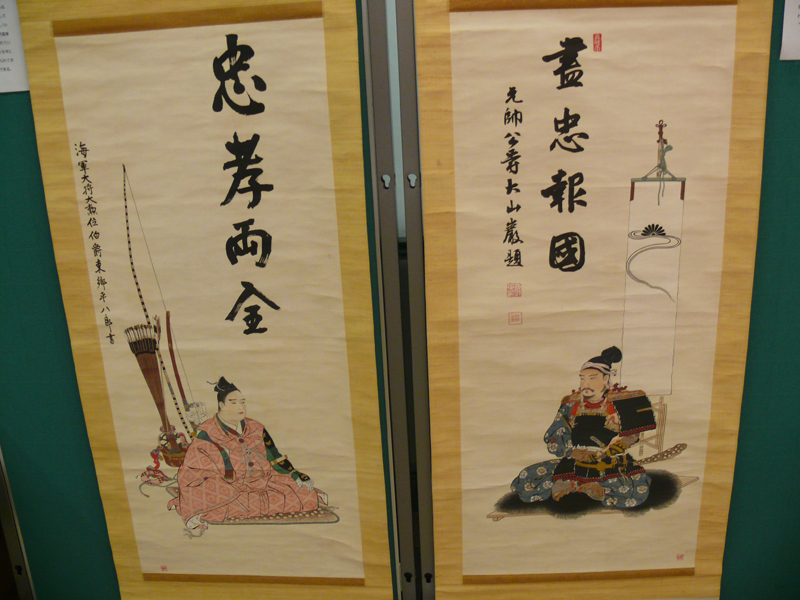 盡忠報國
元帥公爵大山巖題
忠孝両全
海軍大将大勲位伯爵東郷平八郎書